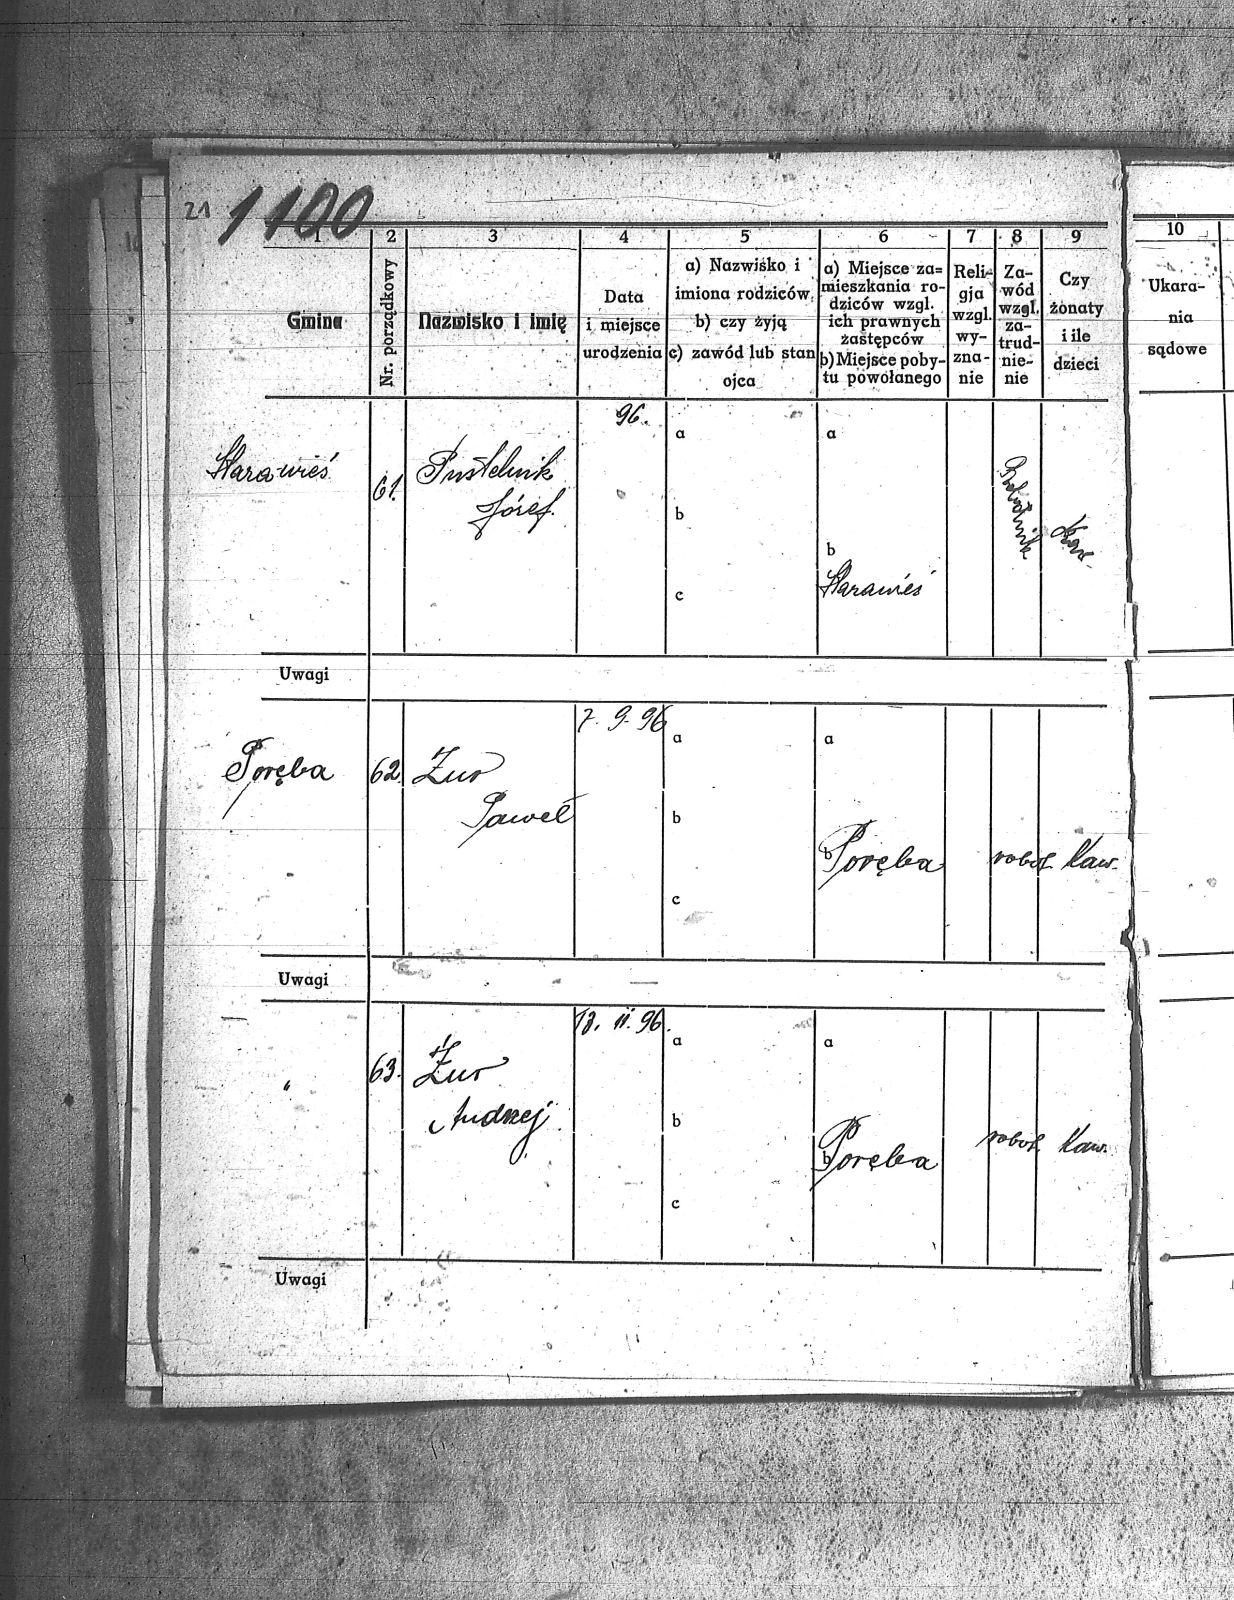 21 1100
1 2 3 4 5 6 7 8 9 10
Gmina
Nr. porządkowy
Nazwisko i imię
Data
i miejsce
urodzenia
a) Nazwisko i
imiona rodziców
b) czy żyją
c) zawód lub stan
ojca
a) Miejsce za=
mieszkania ro-
dziców wzgl.
ich prawnych
zastępców
b) Miejsce poby-
tu powołanego
Reli-
gja
wzgl.
wy-
zna-
nie
Za-
wód
wzgl.
za-
trud-
nie-
nie
Czy
żonaty
i ile
dzieci
Ukara-
nia
sądowe
96.
a a
Starawieś 61. Pustelnik
Józef.
Robotnik
Kaw.
b
b
Starawieś
c
Uwagi
7. 9. 96
a a
Poręba 62. Żur
Paweł
b
b Poręba robot. Kaw.
c
Uwagi
13. 11. 96.
a a
" 63. Żur
Andrzej
b
b Poręba robot. Kaw.
c
Uwagi